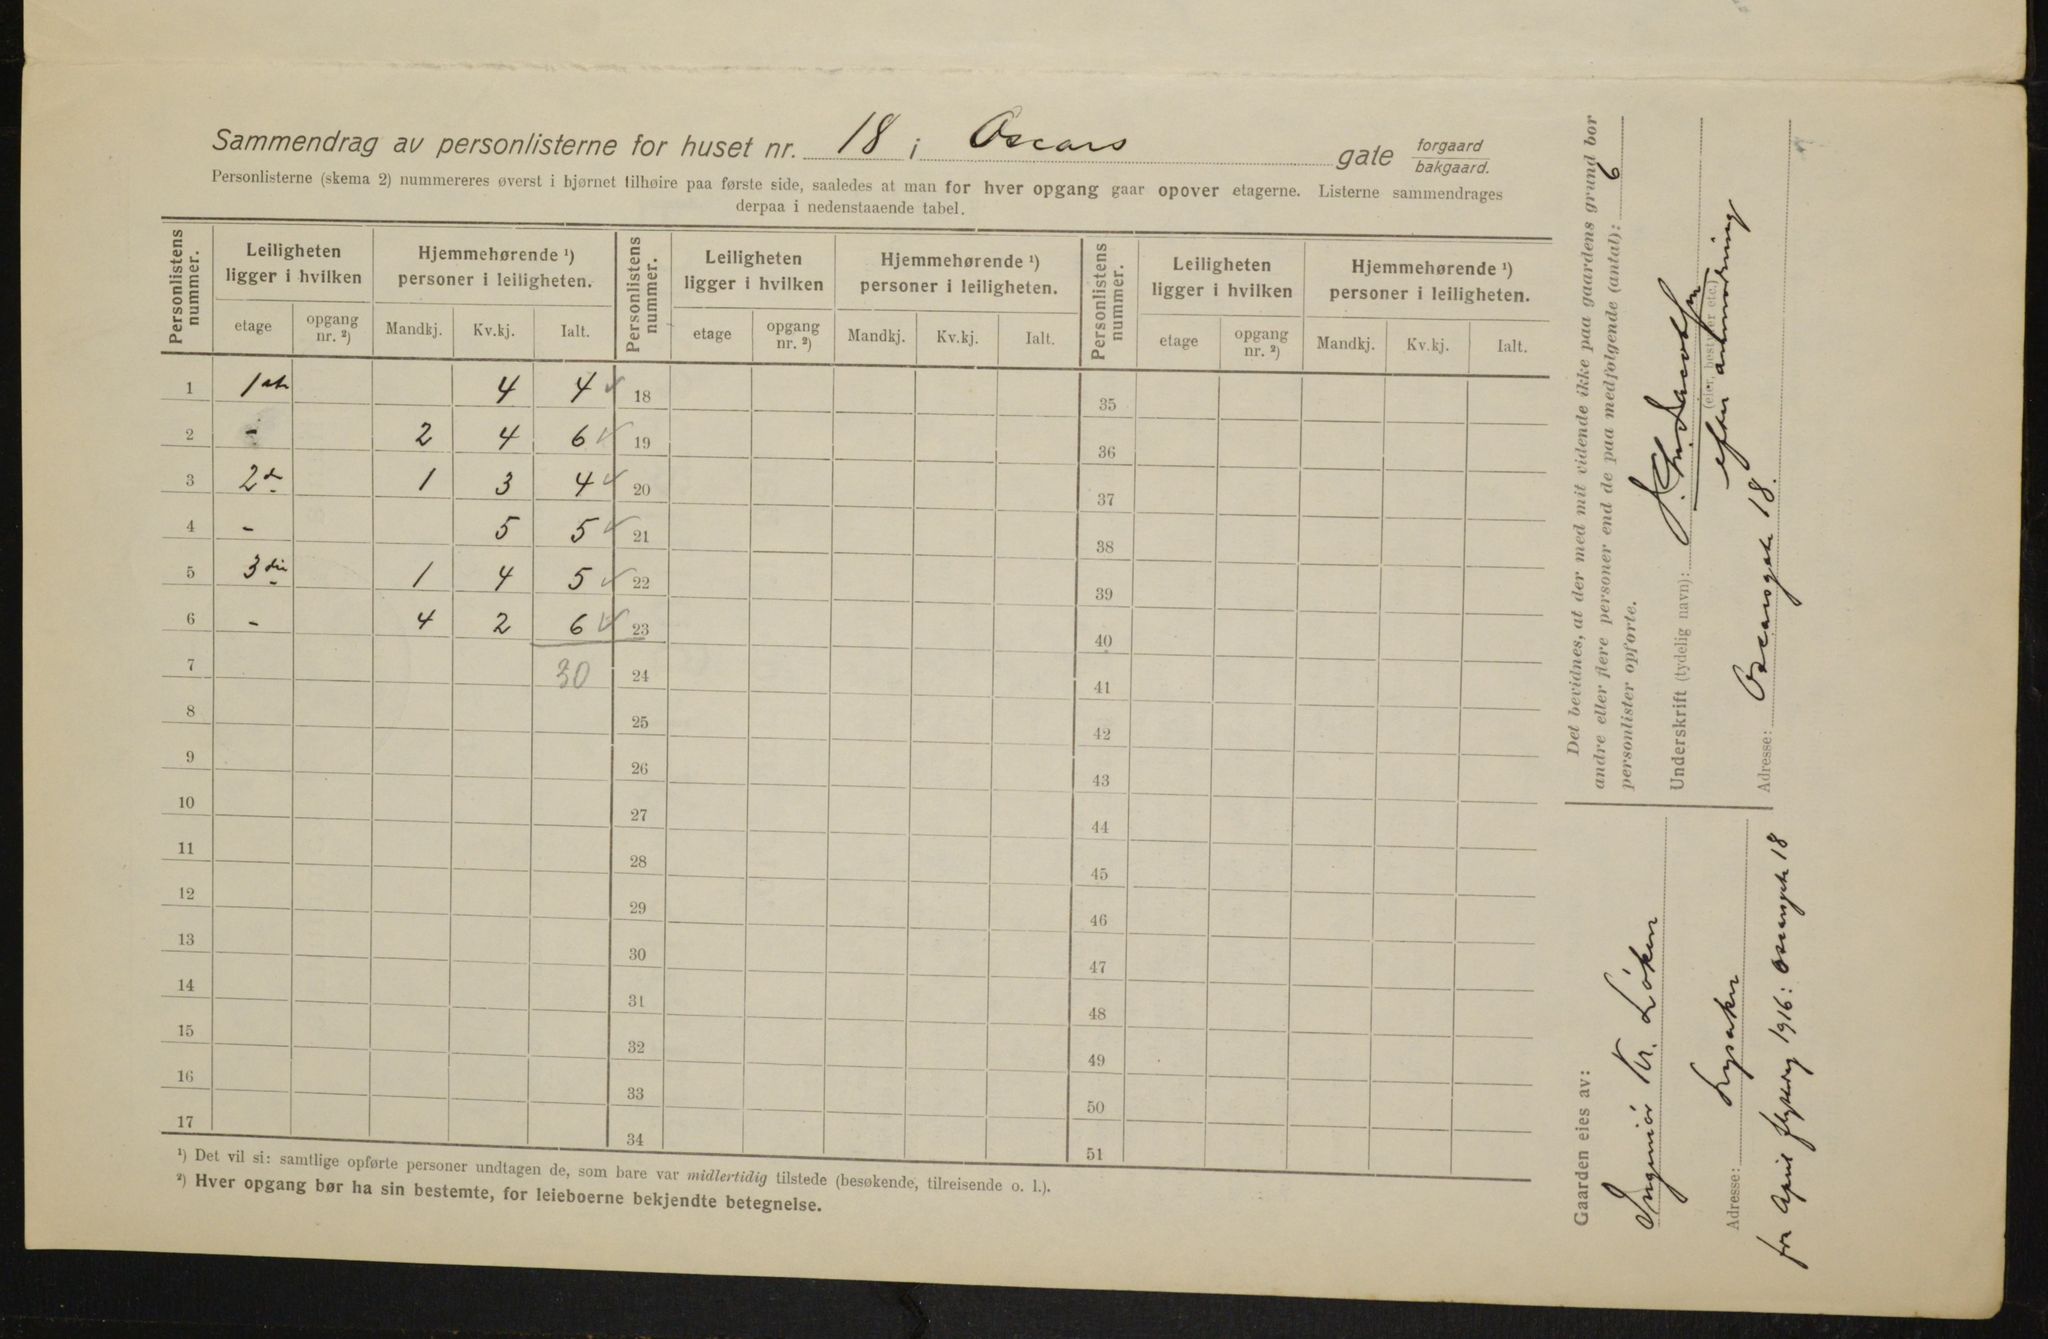 Sammendrag av personlisterne for huset nr. 18 i Oscars gate forgaard bakgaard.
Personlisterne (skema 2) nummereres øverst i hjørnet tilhøire paa første side, saaledes at man for hver opgang gaar opover etagerne. Listerne sammendrages
derpaa i nedenstaaende tabel.
Personlistens nummer. Leiligheten ligger i hvilken Hjemmehørende ¹) personer i leiligheten. Personlistens nummer. Leiligheten ligger i hvilken Hjemmehørende ¹) personer i leiligheten. Personlistens nummer. Leiligheten ligger i hvilken Hjemmehørende ¹) personer i leiligheten.
etage opgang nr. ²) Mandkj. Kv.kj. Ialt. etage opgang nr. ²) Mandkj. Kv.kj. Ialt. etage opgang nr. ²) Mandkj. Kv.kj. Ialt.
1 1ste 4 4 ✓ 18 35
2 - 2 4 6 ✓ 19 36
3 2d 1 3 4 ✓ 20 37
4 - 5 5 ✓ 21 38
5 3die 1 4 5 ✓ 22 39
6 - 4 2 6 ✓ 23 40
7 30 24 41
8 25 42
9 26 43
10 27 44
11 28 45
12 29 46
13 30 47
14 31 48
15 32 49
16 33 50
17 34 51
¹) Det vil si: samtlige opførte personer undtagen de, som bare var midlertidig tilstede (besøkende, tilreisende o. l.).
²) Hver opgang bør ha sin bestemte, for leieboerne bekjendte betegnelse.
Det bevidnes, at der med mit vidende ikke paa gaardens grund bor
andre eller flere personer end de paa medfølgende (antal): 6
personlister opførte.
Underskrift (tydelig navn): Jacobsen
(eier, bestyrer etc.)
efter anmodning
Adresse: Oscarsgate 18.
Gaarden eies av:
Ingeniør Kr. Løken
Adresse: Lysaker
fra April flytning 1916: Oscarsgate 18